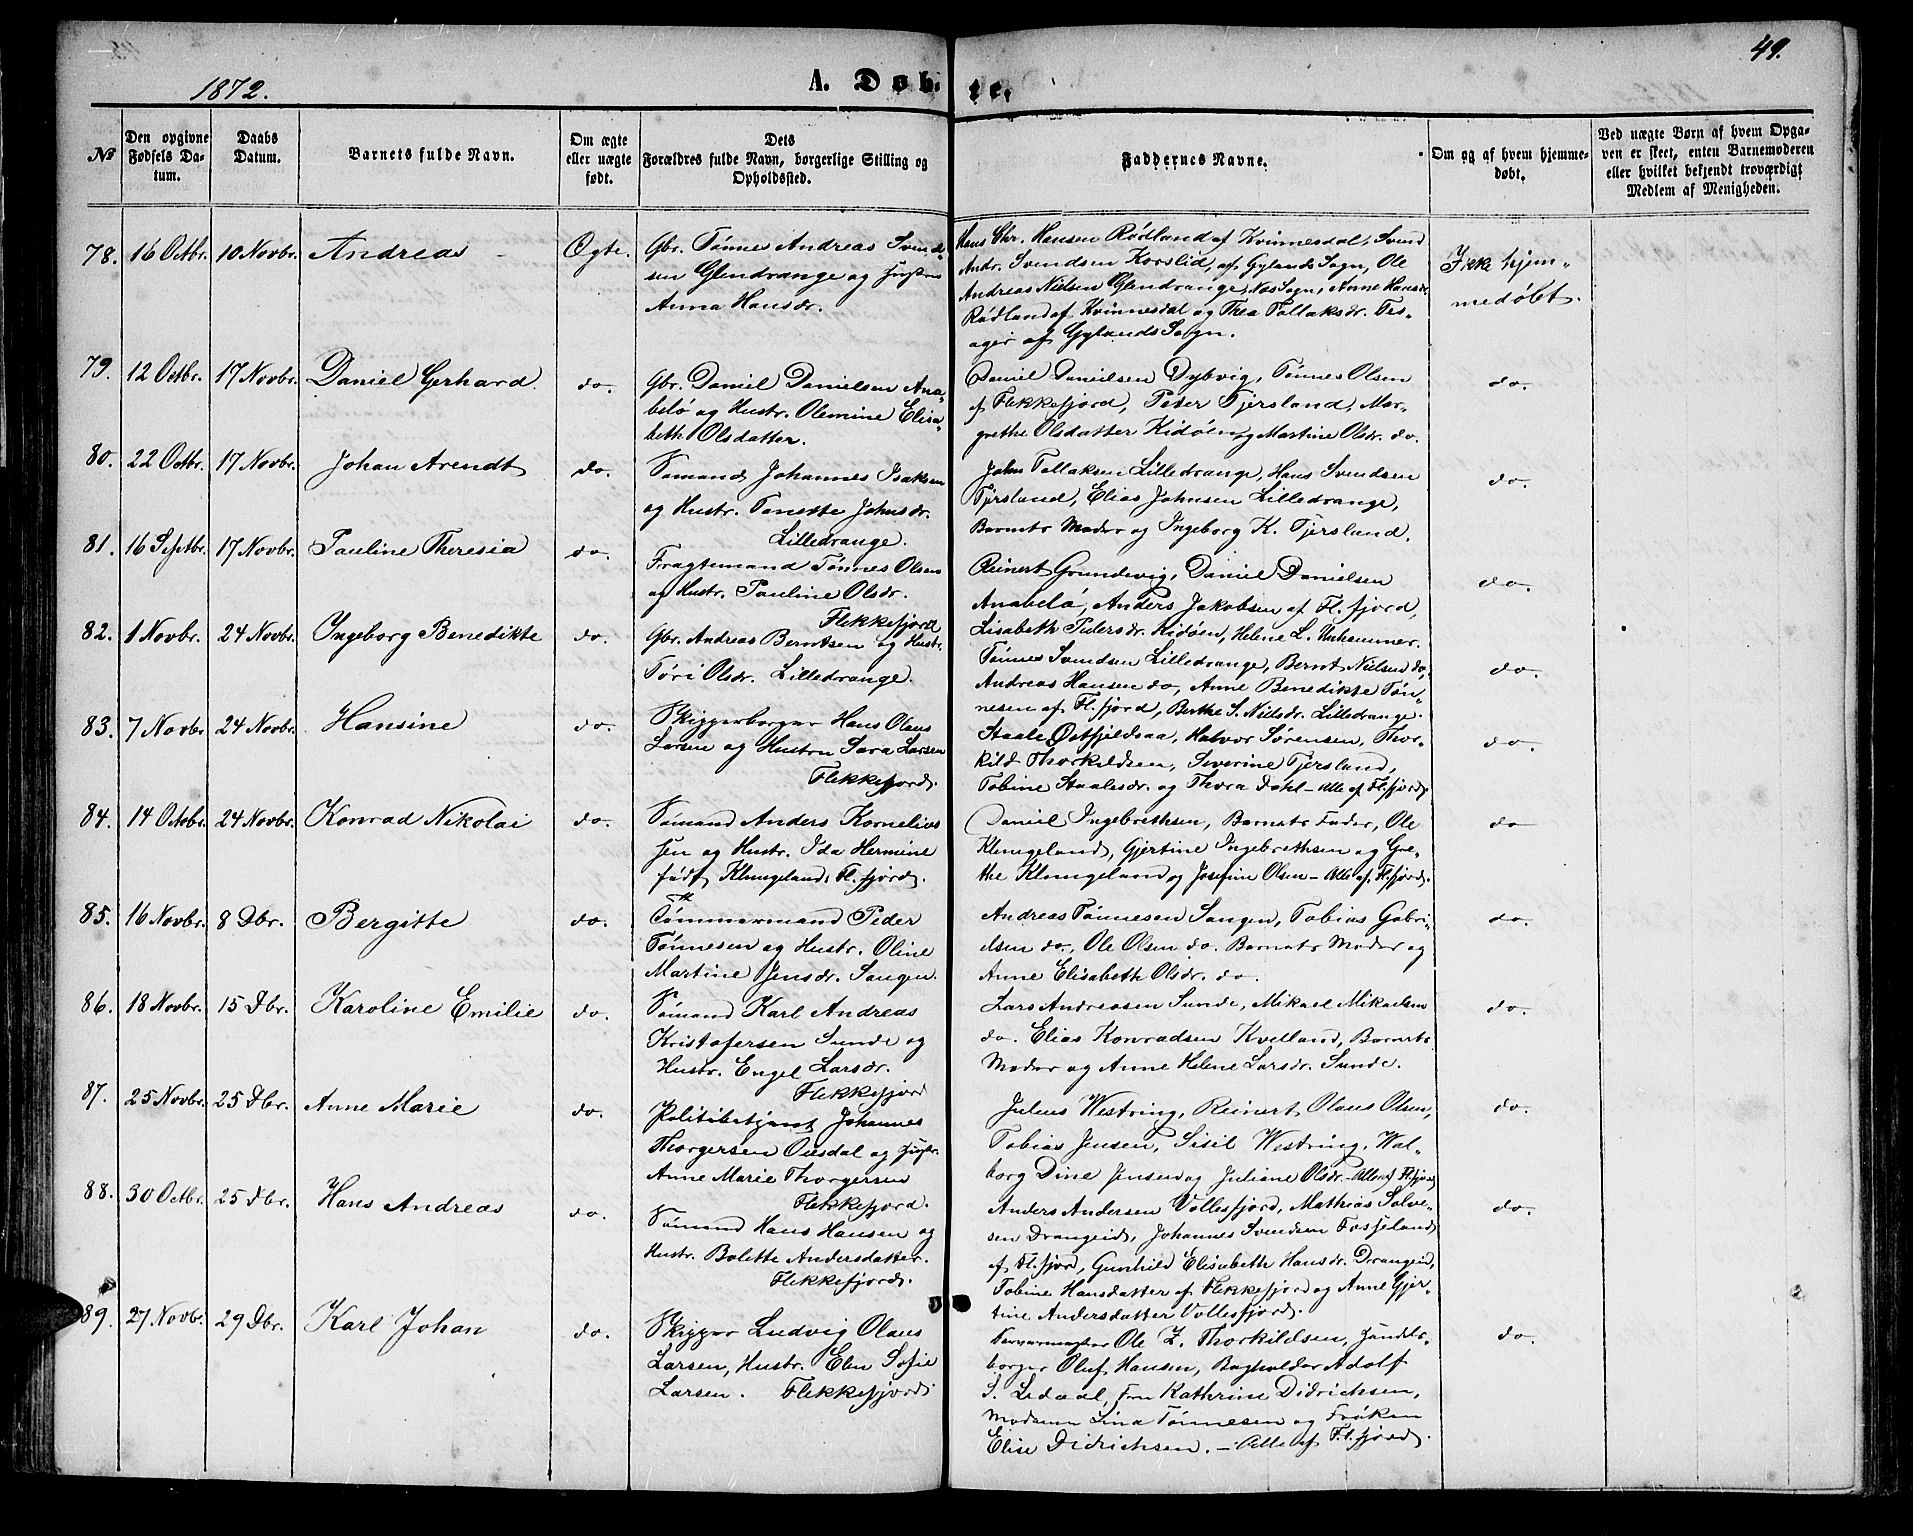 49.
1872.
A. Døb-
te.
No
Den opgivne Fødsels Da-tum.
Daabs Datum.
Barnets fulde Navn.
Om ægte eller uægte født.
Dets Forældres fulde Navn, borgerlige Stilling og Opholdssted.
Faddernes Navne.
Om og af hvem hjemme-døbt.
Ved uægte Børn af hvem Opga-ven er skeet, enten Barnemoderen eller hvilket bekjendt troværdigt Medlem af Menigheden.
78. 16 Octbr. 10 Novbr. Andreas Ægte.
Gbr. Tønnes Andreas Svend-
sen Glendrange og Hustru
Anna Hansdr.
Hans Chr. Hansen Rødland af Kvinnesdal, Svend
Andr. Svendsen Korslid, af Gylands Sogn, Ole
Andreas Nielsen Glendrange, Næs Sogn, Anne Hansdr.
Rødland af Kvinnesdal og Thea Tollaksdr. Tes-
ager af Gylands Sogn.
Ikke hjem-
medøbt.
79. 12 Octbr. 17 Novbr. Daniel Gerhard. do.
Gbr. Daniel Danielsen Ana-
beló og Hustr. Olemine Elisa-
beth Olsdatter.
Daniel Danielsen Dybvig, Tønnes Olsen
af Flekkefjord, Peter Tjersland, Mar-
grethe Olsdatter Kidóen og Martine Olsdr. do.
do.
80. 22 Octbr. 17 Novbr. Johan Arendt do.
Sømand Johannes Isaksen
og Hustr. Tonette Johnsdr.
Lilledrange.
John Tollaksen Lilledrange, Hans Svendsen
Tjersland, Elias Johnsen Lilledrange,
Barnets Moder og Ingeborg K. Tjersland.
do.
81. 16 Septbr. 17 Novbr. Pauline Theresia do.
Fragtemand Tönnes Olsen
og Hustr. Pauline Olsdr.
Flekkefjord
Reinert Grundevig, Daniel Danielsen
Anabeló, Anders Jakobsen af Fl.fjord,
Lisabeth Pedersdr. Kidóen, Helene L. Urhammer.
do.
82. 1 Novbr. 24 Novbr. Ingeborg Benedikte do.
Gbr. Andreas Berntsen og Hustr.
Töri Olsdr. Lilledrange.
Tønnes Svendsen Lilledrange, Bernt Nielsen do,
Andreas Hansen do, Anne Benedikte Tøn-
nesen af Fl.fjord, Berthe S. Nilsdr. Lilledrange.
do.
83. 7 Novbr 24 Novbr. Hansine do.
Skiggerborger Hans Olaus
Larsen og Hustru Sara Larsen
Flekkefjord.
Staale Østfjeldsaa, Halvor Sørensen, Thor-
kild Thorkildsen, Severine Tjersland,
Tobine Staalesdr. og Thora Dahl - Alle af Fl.fjord.
do.
84. 14 Octbr. 24 Novbr. Konrad Nikolai do.
Sømand Anders Kornelius
sen og Hustr. Ida Hermine
født Klungeland, Fl.fjord.
Daniel Ingebrethsen, Barnets Fader, Ole
Klungeland, Gjertine Ingebrethsen og Gre-
the Klungeland og Josefine Olsen - Alle af Fl.fjord.
do
85. 16 Novbr. 8 Dbr. Bergitte do.
Tømmermand Peder
Tönnesen og Hustr. Oline
Martine Jensdr. Sangen.
Andreas Tønnesen Sangen, Tobias Gabri-
elsen do, Ole Olsen do. Barnets Moder og
Anne Elisabeth Olsdr. do.
do.
86. 18 Novbr. 15 Dbr. Karoline Emilie do.
Sømand Karl Andreas
Kristofersen Sunde og
Hustr. Engel Larsdr.
Flekkefjord
Lars Andreasen Sunde, Mikael Mikaelsen
do. Elias Konradsen Kvelland, Barnets
Moder og Anne Helene Larsdr. Sunde.
do.
87. 25 Novbr. 25 Dbr. Anne Marie do.
Politibetjent Johannes
Thorgersen Ousdal og Hustr.
Anne Marie Thorgersen
Flekkefjord.
Julius Westring, Reinert Olaus Olsen,
Tobias Jensen, Sisil Westring, Wal-
borg Dine Jensen og Juliane Olsdr. - Alle af Fl.fjord
do.
88. 30 Octbr. 25 Dbr. Hans Andreas do.
Sømand Hans Hansen og
Hustr. Bolette Andersdatter.
Flekkefjord.
Anders Andersen Vollesfjord, Mathias Salve-
sen Drangeid, Johannes Svendsen Fosseland
af Fl.fjord, Gunhild Elisabeth Hansdr. Drangeid,
Tobine Hansdatter af Flekkefjord og Anne Gjer-
tine Andersdatter Vollesfjord.
do.
89. 27 Novbr. 29 Dbr. Karl Johan do.
Skigger Ludvig Olaus
Larsen, Hustr. Elen Sofie
Larsen. Flekkefjord
Ole Z. Thorkildsen, Handels-
borger Oluf Hansen, Bogholder Adolf
S. Ledaal, Fru Kathrine Didrichsen,
Madamm Lina Tønnesen og Frøken
Elise Didrichsen. - Alle af Fl.fjord.
do.